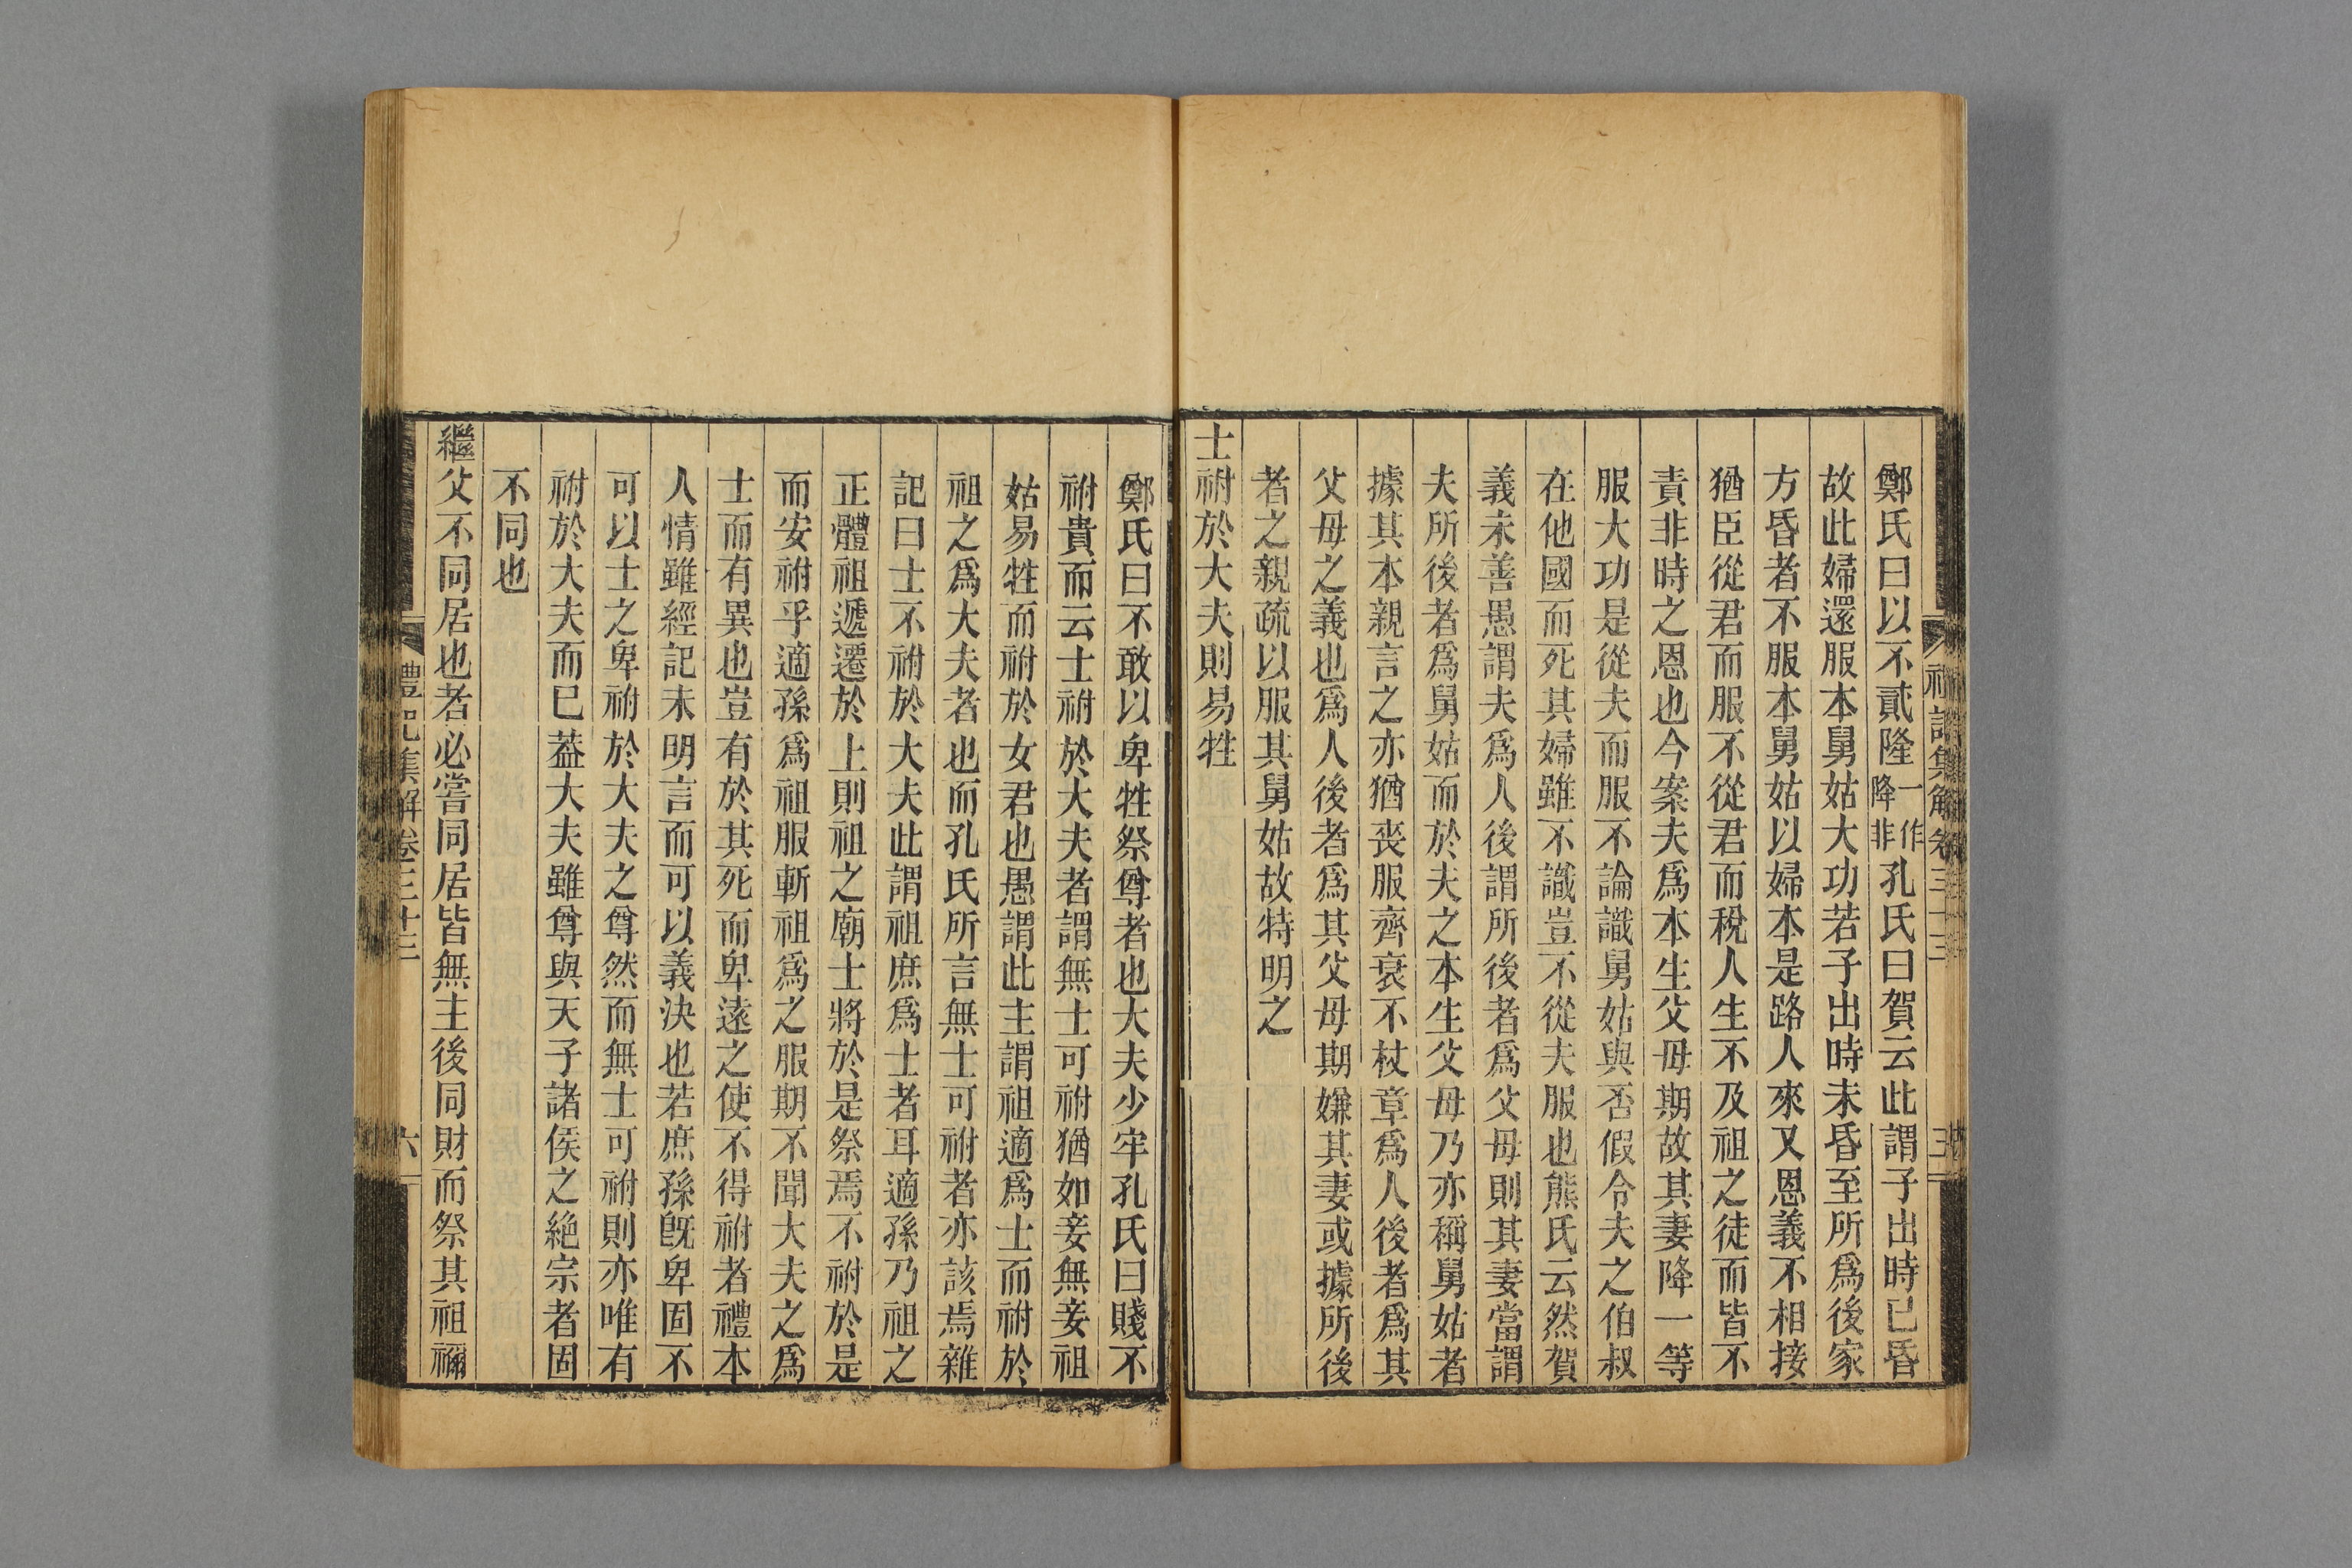 鄭氏曰以不貳隆一作降非孔氏曰賀云此謂子出時已昏
故此婦還服本舅姑大功若子出時未昏至所爲後家
方昏者不服本舅姑以婦本是路人來又恩義不相接
猶臣從君而服不從君而稅人生不及祖之徒而皆不
責非時之恩也今案夫爲本生父母期故其妻降一等
服大功是從夫而服不論識舅姑與否假令夫之伯叔
在他國而死其婦雖不識豈不從夫服也熊氏云然賀
義未善愚謂夫爲人後謂所後者爲父母則其妻當謂
夫所後者爲舅姑而於夫之本生父母乃亦稱舅姑者
據其本親言之亦猶喪服齊衰不杖章爲人後者爲其
父母之義也爲人後者爲其父母期嫌其妻或據所後
者之親疏以服其舅姑故特明之
士祔於大夫則易牲
鄭氏曰不敢以卑牲祭尊者也大夫少牢孔氏曰賤不
祔貴而云士祔於大夫者謂無士可祔猶如妾無妾祖
姑易牲而祔於女君也愚謂此主謂祖適爲士而祔於
祖之爲大夫者也而孔氏所言無士可祔者亦該焉雜
記曰士不祔於大夫此謂祖庶爲士者耳適孫乃祖之
正體祖遞遷於上則祖之廟士將於是祭焉不祔於是
而安祔乎適孫爲祖服斬祖爲之服期不聞大夫之爲
士而有異也豈有於其死而卑遠之使不得祔者禮本
人情雖經記未明言而可以義決也若庶孫旣卑固不
可以士之卑祔於大夫之尊然而無士可祔則亦唯有
祔於大夫而已葢大夫雖尊與天子諸侯之絕宗者固
不同也
繼父不同居也者必嘗同居皆無主後同財而祭其祖禰
禮記集解卷三十三
六